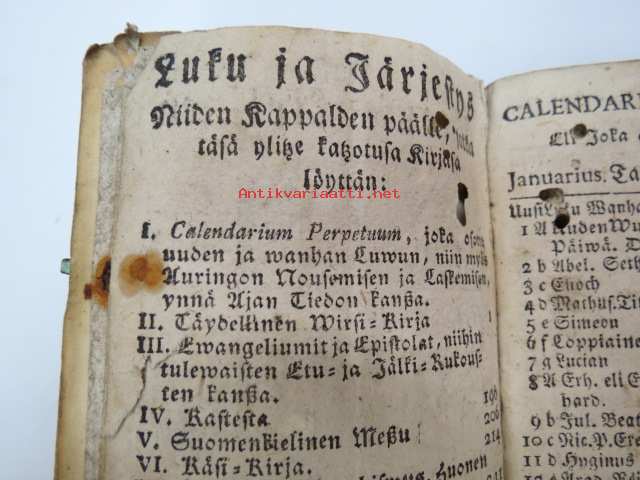 Luku ja Järjestys
Niiden Kappalden päälle, jotka
täsä ylitze katzotusa Kirjasa
löyttän:
Antikvariaatti.net
I. Calendarium Perpetuum, joka osotta
uuden ja wanhan Luwun, niin myös
Auringon Nousemisen ja Laskemisen,
ynnä Ajan Tiedon kanßa.
II. Täydellinen Wirsi-Kirja 1
III. Ewangeliumit ja Epistolat, niihin
tulewaisten Etu- ja Jälki-Rukous-
ten kanßa. 196
IV. Kastesta 206
V. Suomenkielinen Meßu 214
VI. Käsi-Kirja.
Huonen
CALENDARI
Eli Joka
Januarius. Tä
UusiLuku Wanha
1 A Uuden Wu
Päiwä. D
2 b Abel. Seth
3 c Enoch
4 d Mathus. Tit
5 e Simeon
6 f Coppiaine
7 g Lucian
8 A Erh. eli E
hard.
9 b Jul. Beat
10 c Nic. P. Ere
11 d Hyginus